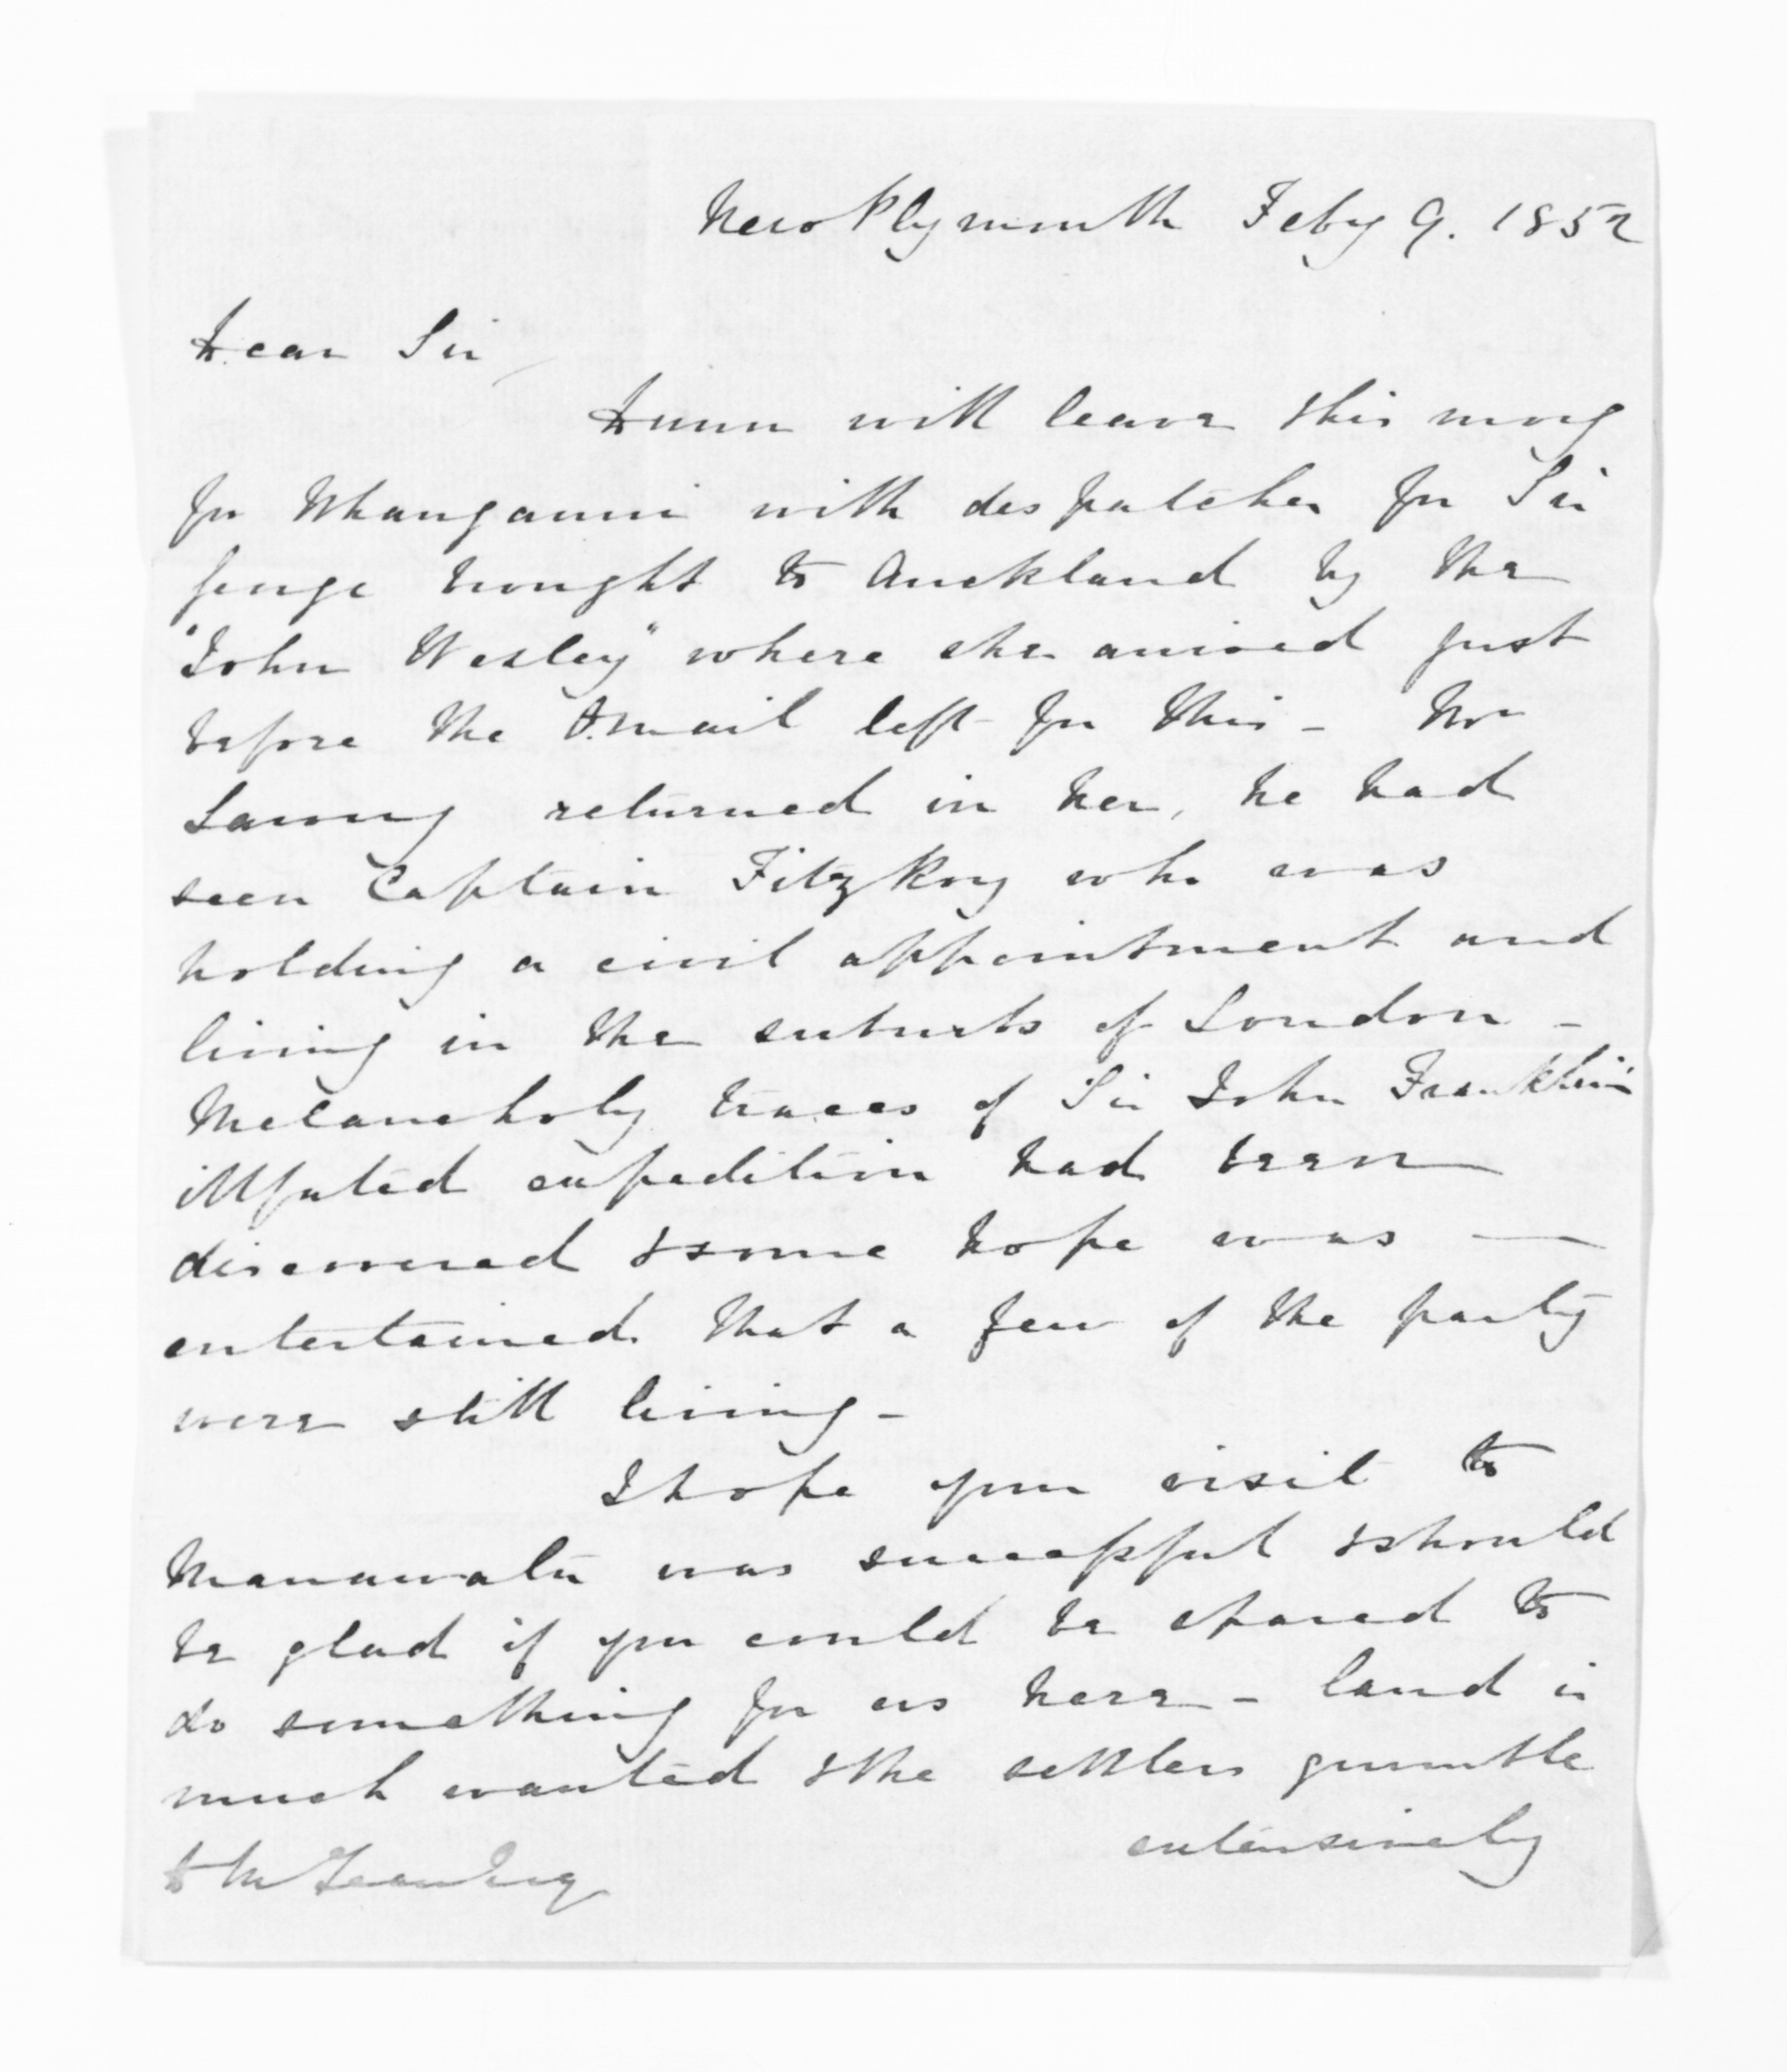 New Plymouth Feby 9. 1852
Dear Sir
Dunn will leave this morng
for Whanganui with despatches for Sir
George brought to Auckland by the
"John Wesley" where she arrived just
before the O. mail left for this - Mr
Lawry returned in her, he had
seen Captain FitzRoy who was
holding a civil appointment and
living in the suburbs of London -
Melancholy traces of Sir John Franklin's
illfated expedition had been
discovered & some hope was —
entertained that a few of the party
were still living -
I hope your visit to
Manawatu was successful & should
be glad if you could be spared to
do something for us here - land is
much wanted & the settlers grumble
extensively
D McLean Esq